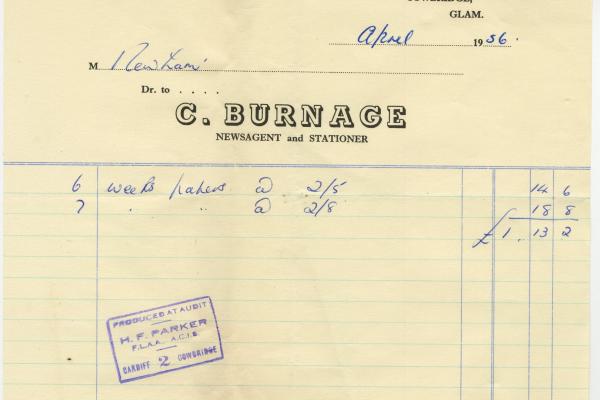 GLAM.
April 1956.
M Newham
Dr. to . . . .
C. BURNAGE
NEWSAGENT and STATIONER
6 weeks papers @ 2/5 14 6
7 " " @ 2/8 18 8
£1. 13 2
PRODUCED AT AUDIT
H. F. PARKER
F.L.A.A., A.C.I.S.
CARDIFF 2 COWBRIDGE